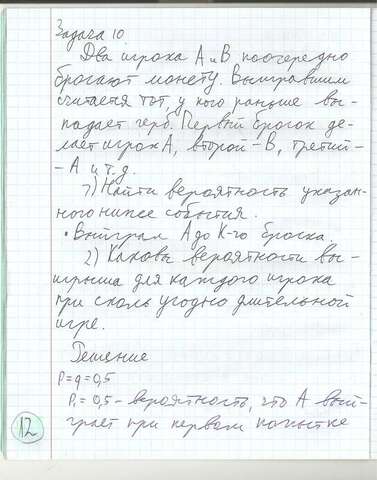 Задача 10
Два игрока А и В поочередно
бросают монету. Выигравшим
считается тот, у кого раньше вы-
падает герб. Первый бросок де-
лает игрок А, второй - В, третий -
- А и т.д.
1) Найти вероятность указан-
ного ниже события.
• Выиграл А до К-го броска.
2) Каковы вероятности вы-
игрыша для каждого игрока
при сколь угодно длительной
игре.
Решение
p = q = 0,5
P₁ = 0,5 - вероятность, что А выи-
грает при первой попытке
12